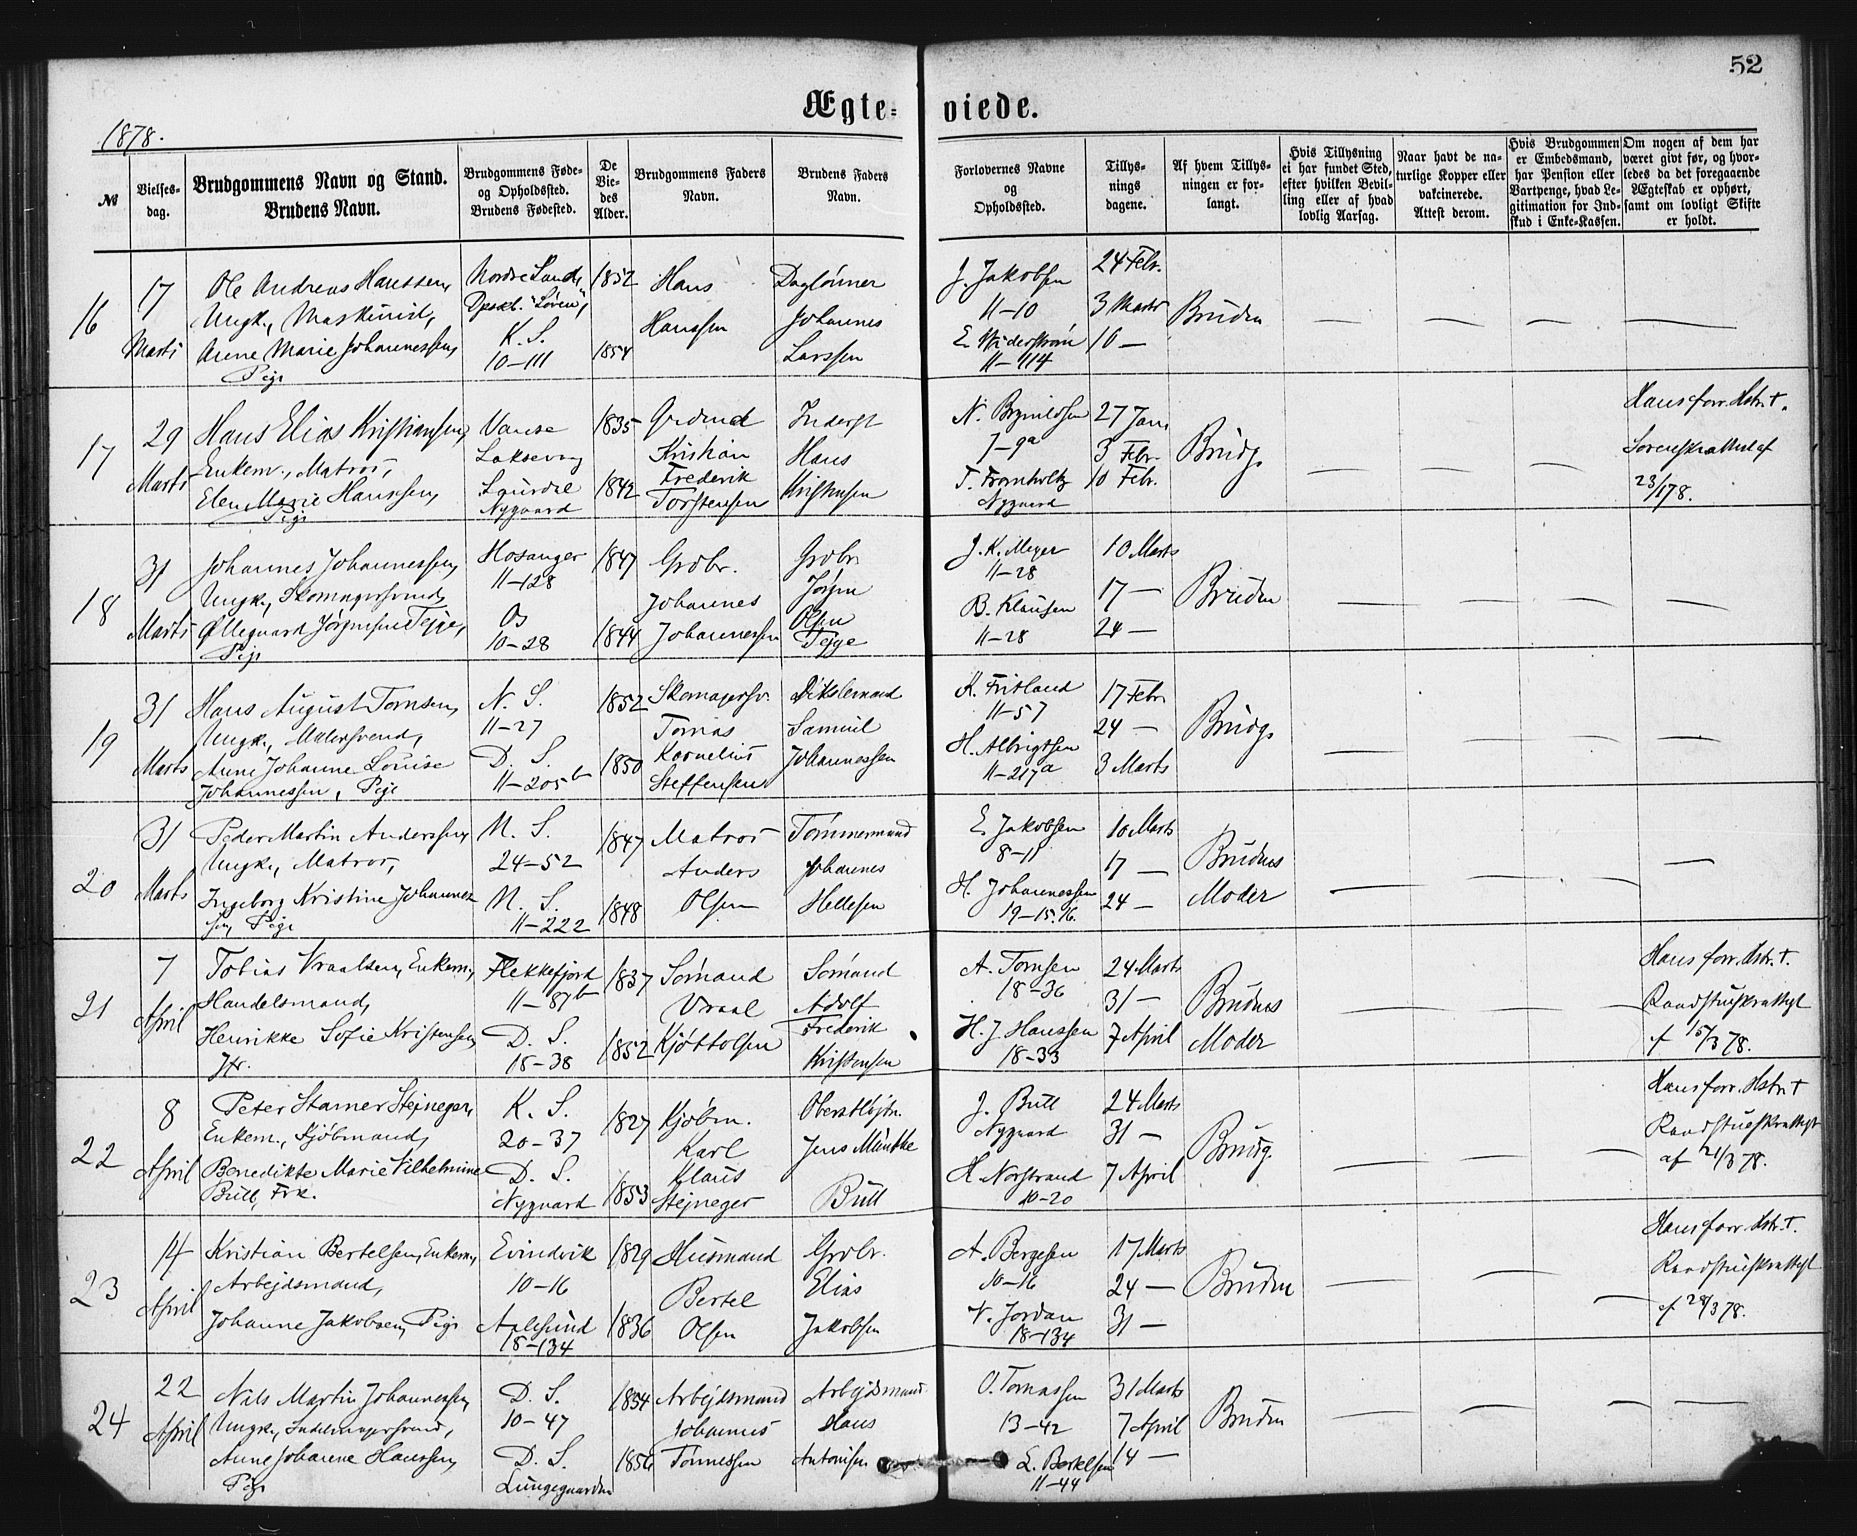 52
Ægte= viede.
1878.
№
Vielses-
dag.
Brudgommens Navn og Stand.
Brudens Navn.
Brudgommens Føde-
og Opholdssted.
Brudens Fødested.
De
Vie-
des
Alder.
Brudgommens Faders
Navn.
Brudens Faders
Navn.
Forlovernes Navne
og
Opholdssted.
Tillys-
nings
dagene.
Af hvem Tillys-
ningen er for-
langt.
Hvis Tillysning
ei har fundet Sted,
efter hvilken Bevil-
ling eller af hvad
lovlig Aarsag.
Naar havt de na-
turlige Kopper eller
vakcinerede.
Attest derom.
Hvis Brudgommen
er Embedsmand,
har Pension eller
Vartpenge, hvad Le-
gitimation for Ind-
skud i Enke-Kassen.
Om nogen af dem har
været givt før, og hvor-
ledes da det foregaaende
Ægteskab er ophørt,
samt om lovligt Skifte
er holdt.
16
17
Marts
Ole Andreas Hanssen,
Ungk., Maskinist,
Anne Marie Johannessen,
Pige
Nordre Land,
K. S.
10–111
1852
1854
Hans
Hanssen
Daglønner
Johannes
Larssen
J. Jakobsen
11–10
E. Widerstrøm
11–114
24 Febr.
3 Marts
10 —
Bruden
17
29
Marts
Hans Elias Kristiansen,
Enkem., Matros,
Elen Marie Hanssen,
Pige
Vanse
Laksevaag
Nygaard
1835
1842
Kristian
Frederik
Torstensen
Inderst
Hans
Kristensen
N. Brynildsen
7–9a
T. Fromholtz
Nygaard
27 Jan.
3 Febr.
10 Febr.
Brudg.
Hans forr. Hstr. †.
23/1 78.
18
31
Marts
Johannes Johannessen,
Ungk., Skomagersvend,
Øllegaard Jørgensen Tejge,
Pige
Hosanger
11–128
Os
10–28
1847
1844
Grdbr.
Johannes
Johannessen
Grdbr.
Jørgen
Olsen
Tejge
J. K. Meyer
11–28
B. Klausen
11–28
10 Marts
17 —
24 —
Bruden
19
31
Marts
Hans August Tomsen,
Ungk., Malersvend,
Anne Johanne Louise
Johannessen, Pige
N. S.
11–27
D. S.
11–205b
1852
1850
Skomagersv.
Tomas
Kornelius
Steffensen
Samuel
Johannessen
K. Fritland
11–57
H. Albrigtsen
11–217a
17 Febr.
24 —
3 Marts
Brudg.
20
31
Marts
Peder Martin Anderssen,
Ungk., Matros,
Ingeborg Kristine Johannes-
sen, Pige
N. S.
24–52
N. S.
11–222
1847
1848
Matros
Anders
Olsen
Tømmermand
Johannes
Hellesen
E. Jakobsen
8–11
H. Johannessen
19–15.16.
10 Marts
17 —
24 —
Brudens
Moder
21
7
April
Tobias Vraalsen, Enkem.,
Handelsmand,
Henrikke Sofie Kristensen,
Jfr.
Flekkefjord
11–87b
D. S.
18–38
1837
1852
Sømand
Vraal
Kjøttolsen
Sømand
Adolf
Frederik
Kristensen
A. Tomsen
18–36
H. J. Hanssen
18–33
24 Marts
31 —
7 April
Brudens
Moder
Hans forr. Hstr. †.
Raadstueskrattest
af 15/3 78.
22
8
April
Peter Stamer Stejneger,
Enkem., Kjøbmand,
Benedikte Marie Vilhelmine
Bull, Frk.
K. S.
20–37
D. S.
Nygaard
1827
1853
Kjøbm.
Karl
Klaus
Stejneger
Oberstløjtn.
Jens Munthe
Bull
J. Bull
Nygaard
H. Norstrand
10–20
24 Marts
31 —
7 April
Brudg.
Hans forr. Hstr. †
Raadstueskrattest
af 21/3 78.
23
14
April
Kristian Bertelsen, Enkem.,
Arbejdsmand,
Johanne Jakobsen, Pige
Evindvik
10–16
Aalesund
18–134
1829
1836
Husmand
Bertel
Olsen
Grdbr.
Elias
Jakobsen
A. Bergesen
10–16
N. Jordan
18–134
17 Marts
24 —
31 —
Bruden
Hans forr. Hstr. †.
Raadstueskrattest
af 28/3 78.
24
22
April
Nils Martin Johannessen,
Anne Johanne Hanssen,
Pige
D. S.
10–47
D. S.
Lungegaarden
1854
1856
Arbejdsmand
Johannes
Tønnessen
Arbejdsmand
Hans
Antonisen
O. Tomassen
13–42
L. Bertelsen
11–44
31 Marts
7 April
14 —
Bruden